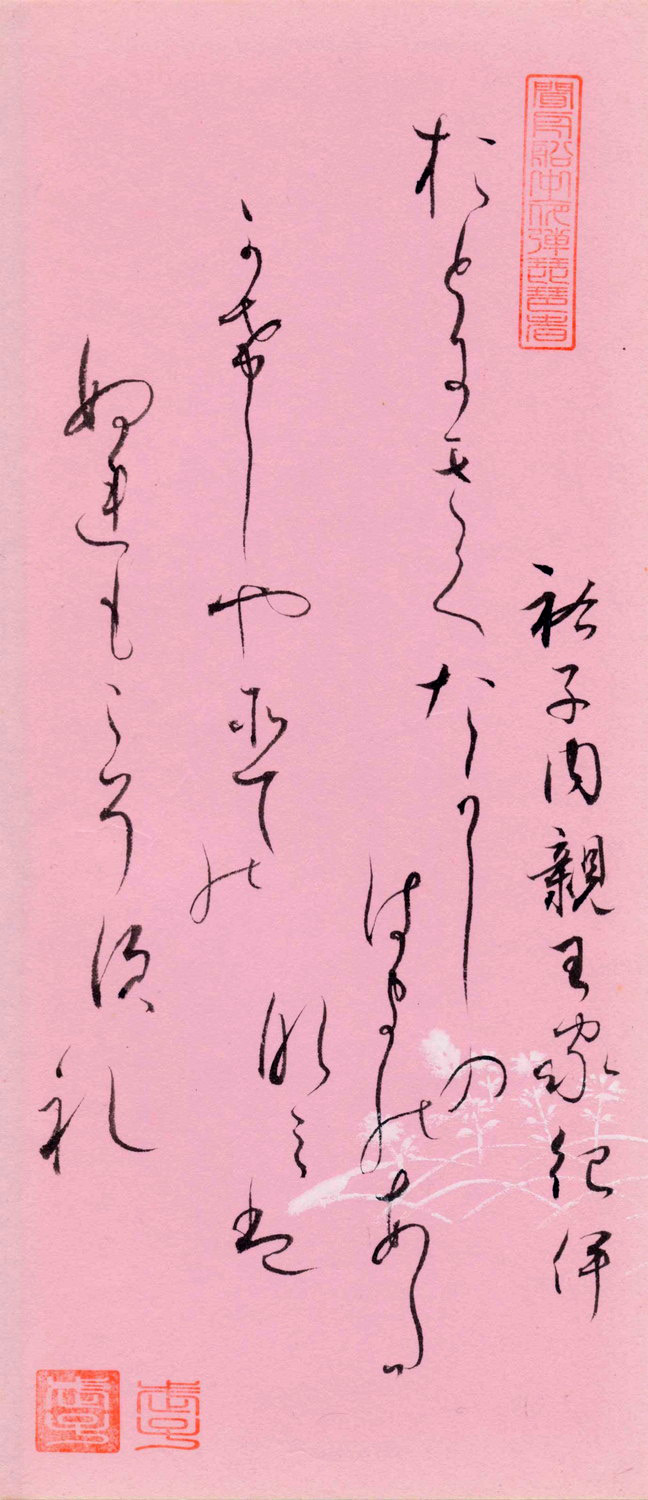 祐子内親王家紀伊
おとにきくたかしの
はまのあだ
なみは
かけしやそての
ぬれもこそすれ